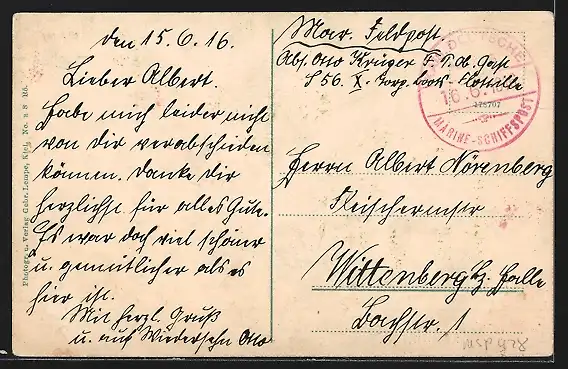 den 15.6.16.
Lieber Albert.
Habe mich leider nicht
von dir verabschieden
können. Danke dir
herzlichst für alles Gute.
Es war doch viel schöner
u. gemütlicher als es
hier ist.
Mit herzl. Gruß
u. auf Wiedersehn Otto
Photogr. u. Verlag Gebr. Lempe, Kiel, No.
Mar. Feldpost.
Abs. Otto Krüger F. T. Gast
S 56. X. Torp. boots-Flottille
DEUTSCHE
16 6 16
MARINE-SCHIFFSPOST
178707
Herrn Albert Nörenberg
Fleischermstr
Wittenberg Bz. Halle
Bachstr. 1
MSP